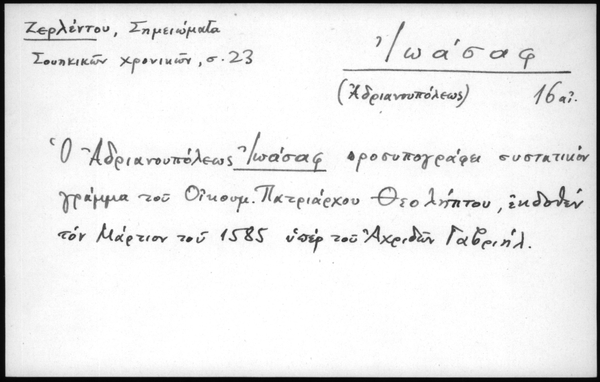 Ζερλέντου, Σημειώματα
Σουηκικῶν χρονικῶν, σ. 23
Ἰωάσαφ
(Ἀδριανουπόλεως) 16 αἰ.
Ὁ Ἀδριανουπόλεως Ἰωάσαφ προσυπογράφει συστατικόν
γράμμα τοῦ Οἰκουμ. Πατριάρχου Θεολήπτου, ἐκδοθέν
τόν Μάρτιον τοῦ 1585 ὑπέρ τοῦ Ἀχριδῶν Γαβριήλ.